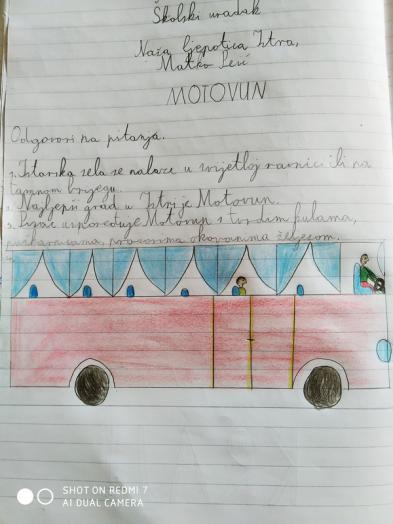 Školski uradak
Naša ljepotica Istra,
Matko Perić
MOTOVUN
Odgovori na pitanja.
1. Istarska sela se nalaze u svijetloj ravnici ili na
tamnom brijegu.
2. Najljepši grad u Istri je Motovun.
3. Pisac uspoređuje Motovun s tvrdim kulama,
puškarnicama, prozorima okovanima željezom.
SHOT ON REDMI 7
AI DUAL CAMERA